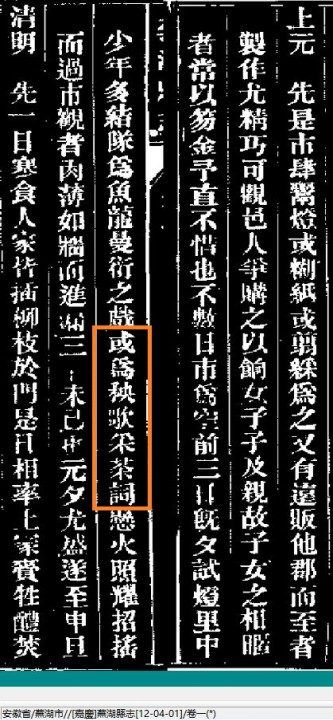 上元　先是市肆鬻燈或糊紙或剪綵爲之又有遠販他郡而至者
製作尤精巧可觀邑人爭購之以餉女子子及親故子女之相暱
者常以笏金予直不惜也不數日市爲空前三日既夕試燈里中
少年多結隊爲魚龍曼衍之戲或爲秧歌采茶詞懸火照耀招搖
而過市觀者肉薄如牆而進漏三 未已也元夕尤盛遂至申旦
清明　先一日寒食人家皆插柳枝於門是日相率上冢賫牲醴焚
安徽省/蕪湖市//[嘉慶]蕪湖縣志[12-04-01]/卷一(*)